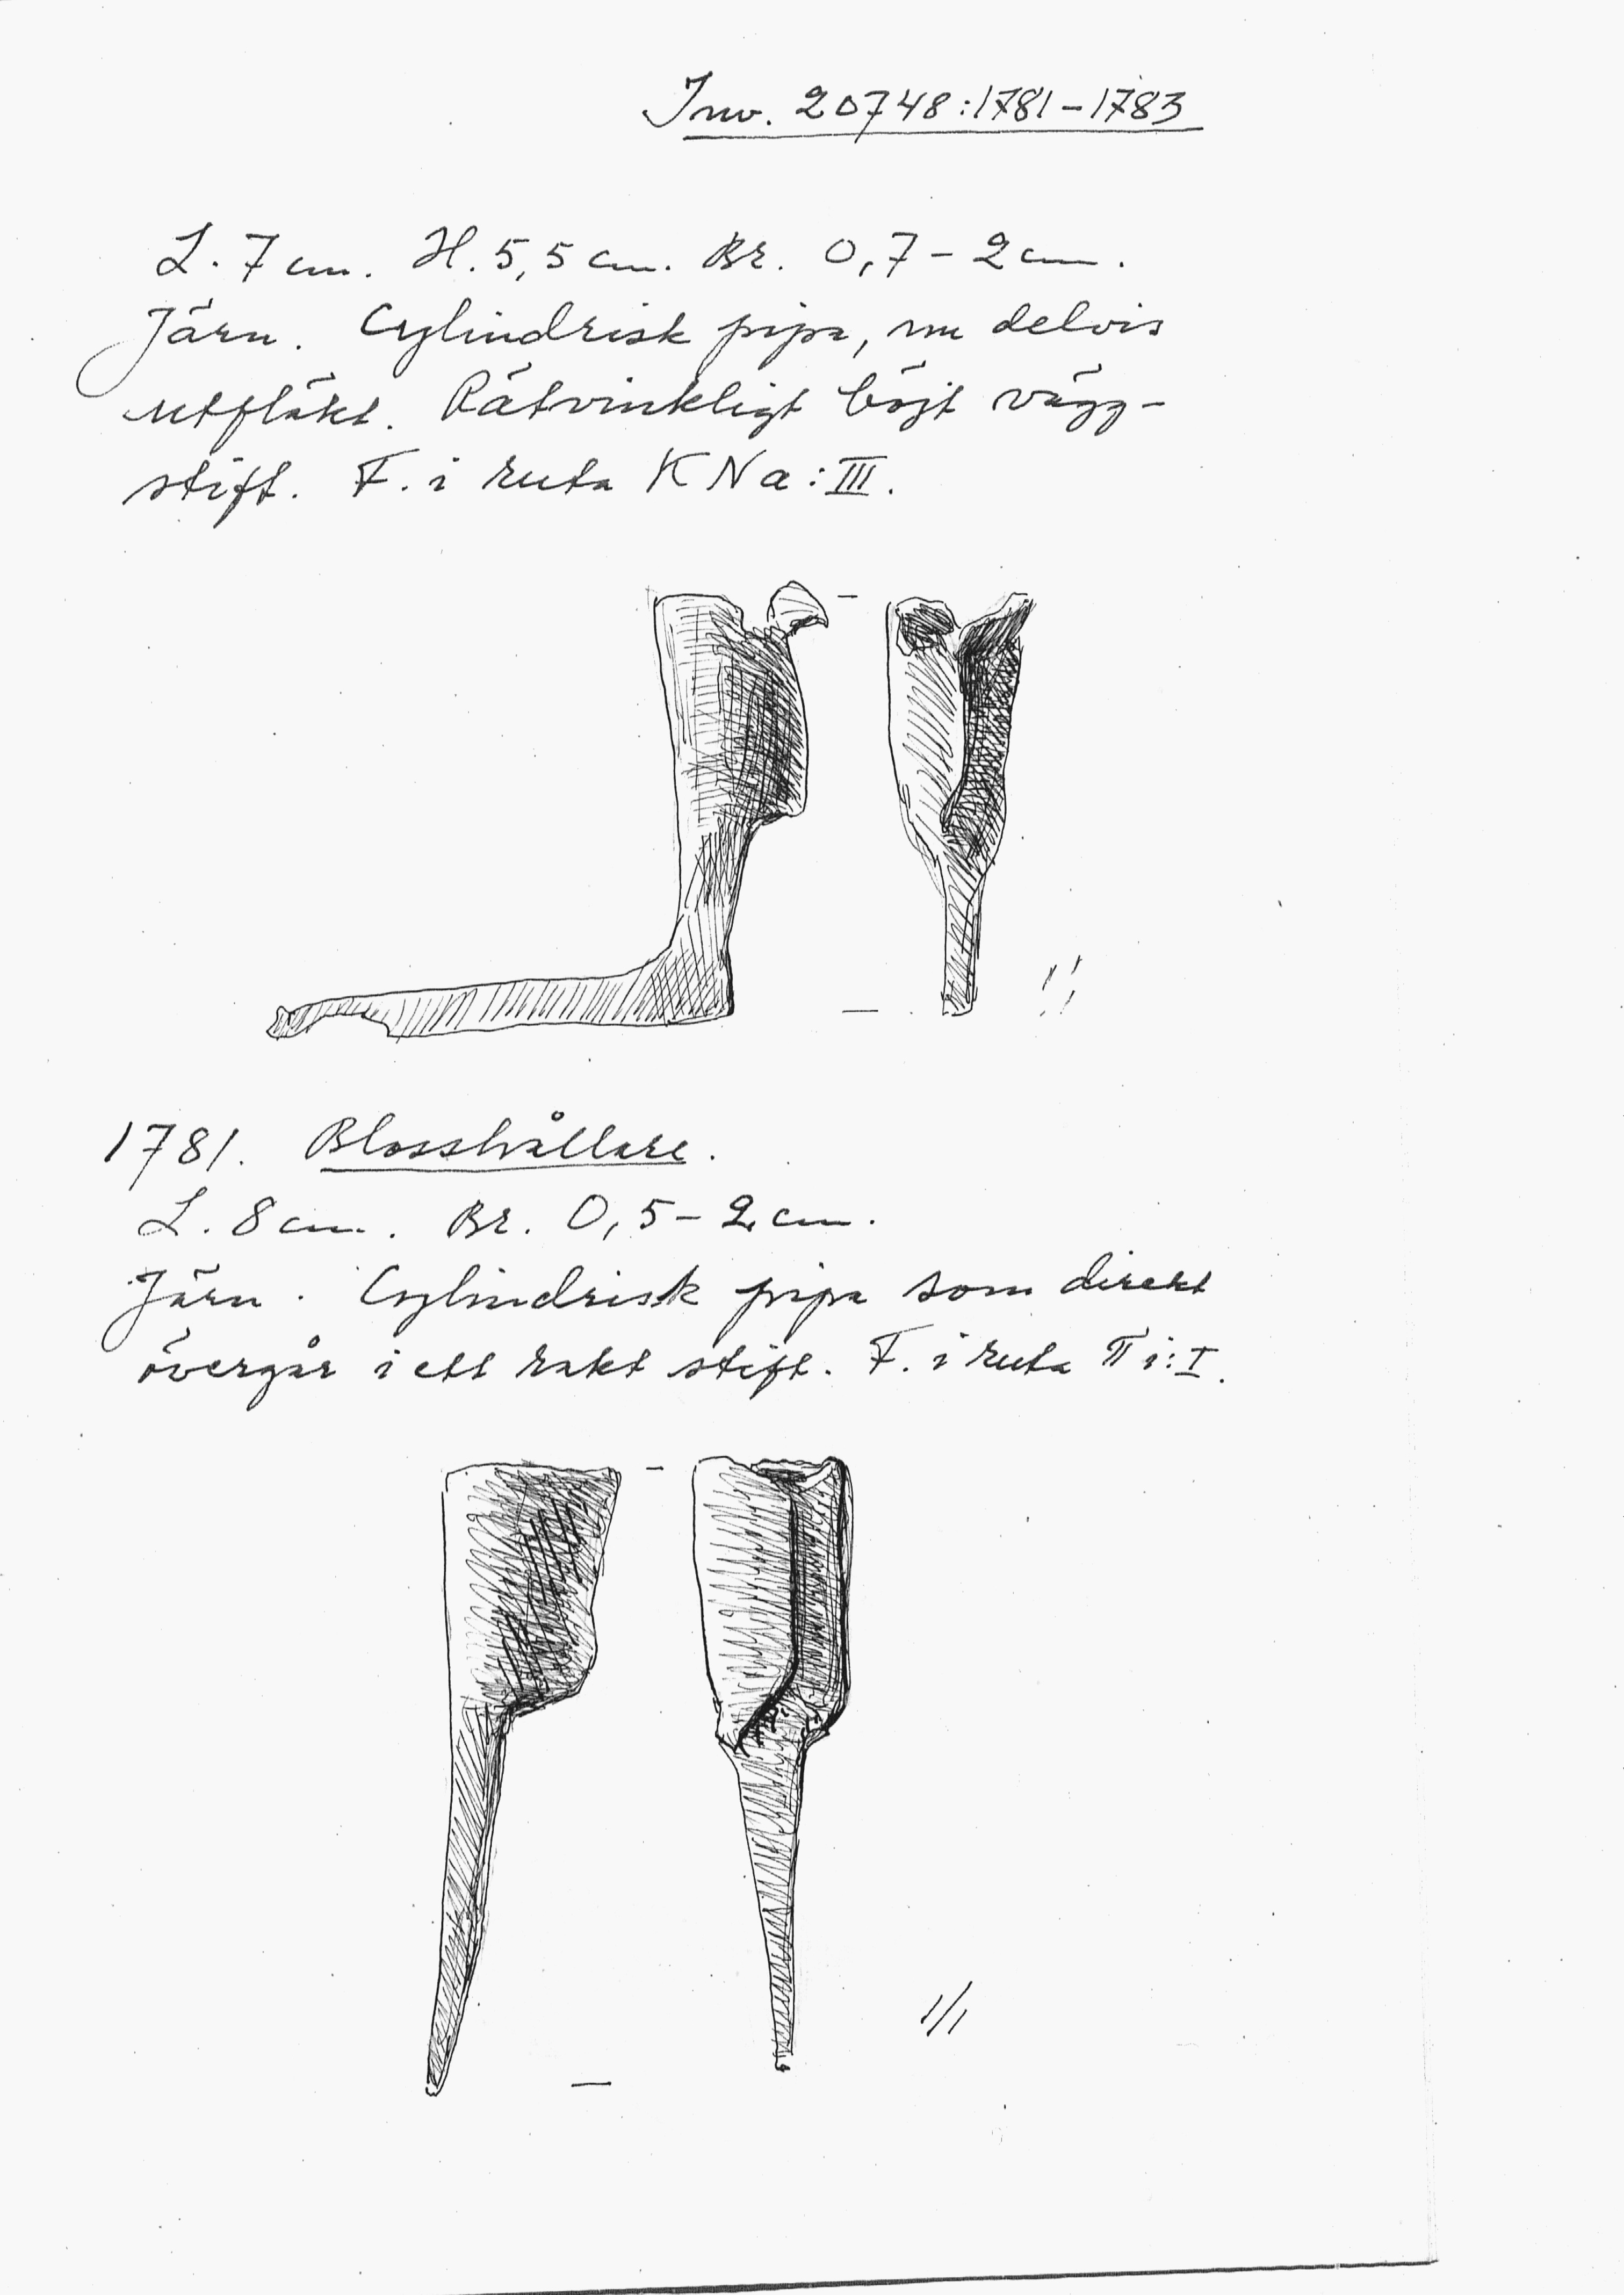 Inv. 20748:1781-1783
L. 7 cm. H. 5,5 cm. Br. 0,7-2 cm.
Järn. Cylindrisk pipa, nu delvis
utfläkt. Rätvinkligt böjt vägg-
stift. F. i ruta KNa:III.
1781. Blosshållare.
L. 8 cm. Br. 0,5-2 cm.
Järn. Cylindrisk pipa som direkt
övergår i ett rakt stift. F. i ruta i:I.
1/1